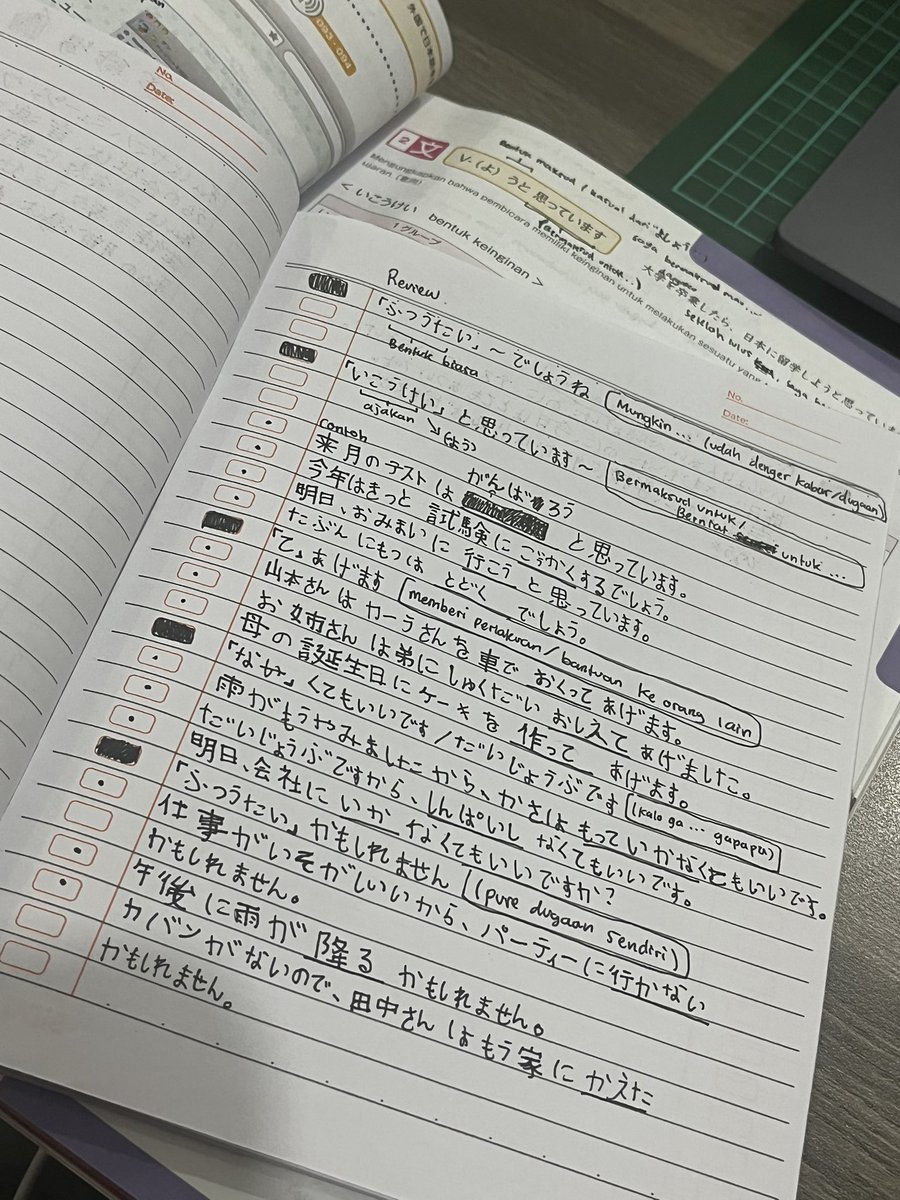 093-094
外国で日本語
No.
Date:
2 文
V-(よ)うと思っています
Mengungkapkan bahwa pembicara memiliki keinginan untuk melakukan sesuatu yang
ujaran (意向)
< いこうけい bentuk keinginan >
1グループ
大学を卒業したら、日本に留学しようと思ってい
setelah lulus
saya
No.
Date:
Review
「ふつうたい」~でしょうね (Mungkin... (udah denger kabar/dugaan)
Bentuk biasa
「いこうけい」と思っています~ Bermaksud untuk/
Berniat untuk...
ajakan (よう)
contoh がんばろう
来月のテストは と思っています。
今年はきっと 試験にごうかくするでしょう。
明日、おみまいに 行こう と思っています。
たぶん にもつは とどく でしょう。
「て」あげます (memberi perlakuan/bantuan ke orang lain)
山本さんはカーラさんを車で おくって あげます。
お姉さんは弟にしゅくだい おしえて あげました。
母の誕生日にケーキを 作って あげます。
「なか」くてもいいです/だいじょうぶです (kalo ga... gapapa)
雨がもうやみましたから、かさは もっていかなくともいいです。
だいじょうぶですから、しんぱいし なくてもいいです。
明日、会社に いか なくてもいいですか?
「ふつうたい」かもしれません (pure dugaan sendiri)
仕事がいそがしいいから、パーティーに行かない
かもしれません。
午後に雨が 降る かもしれません。
カバンがないので、田中さん はもう家に かえた
かもしれません。